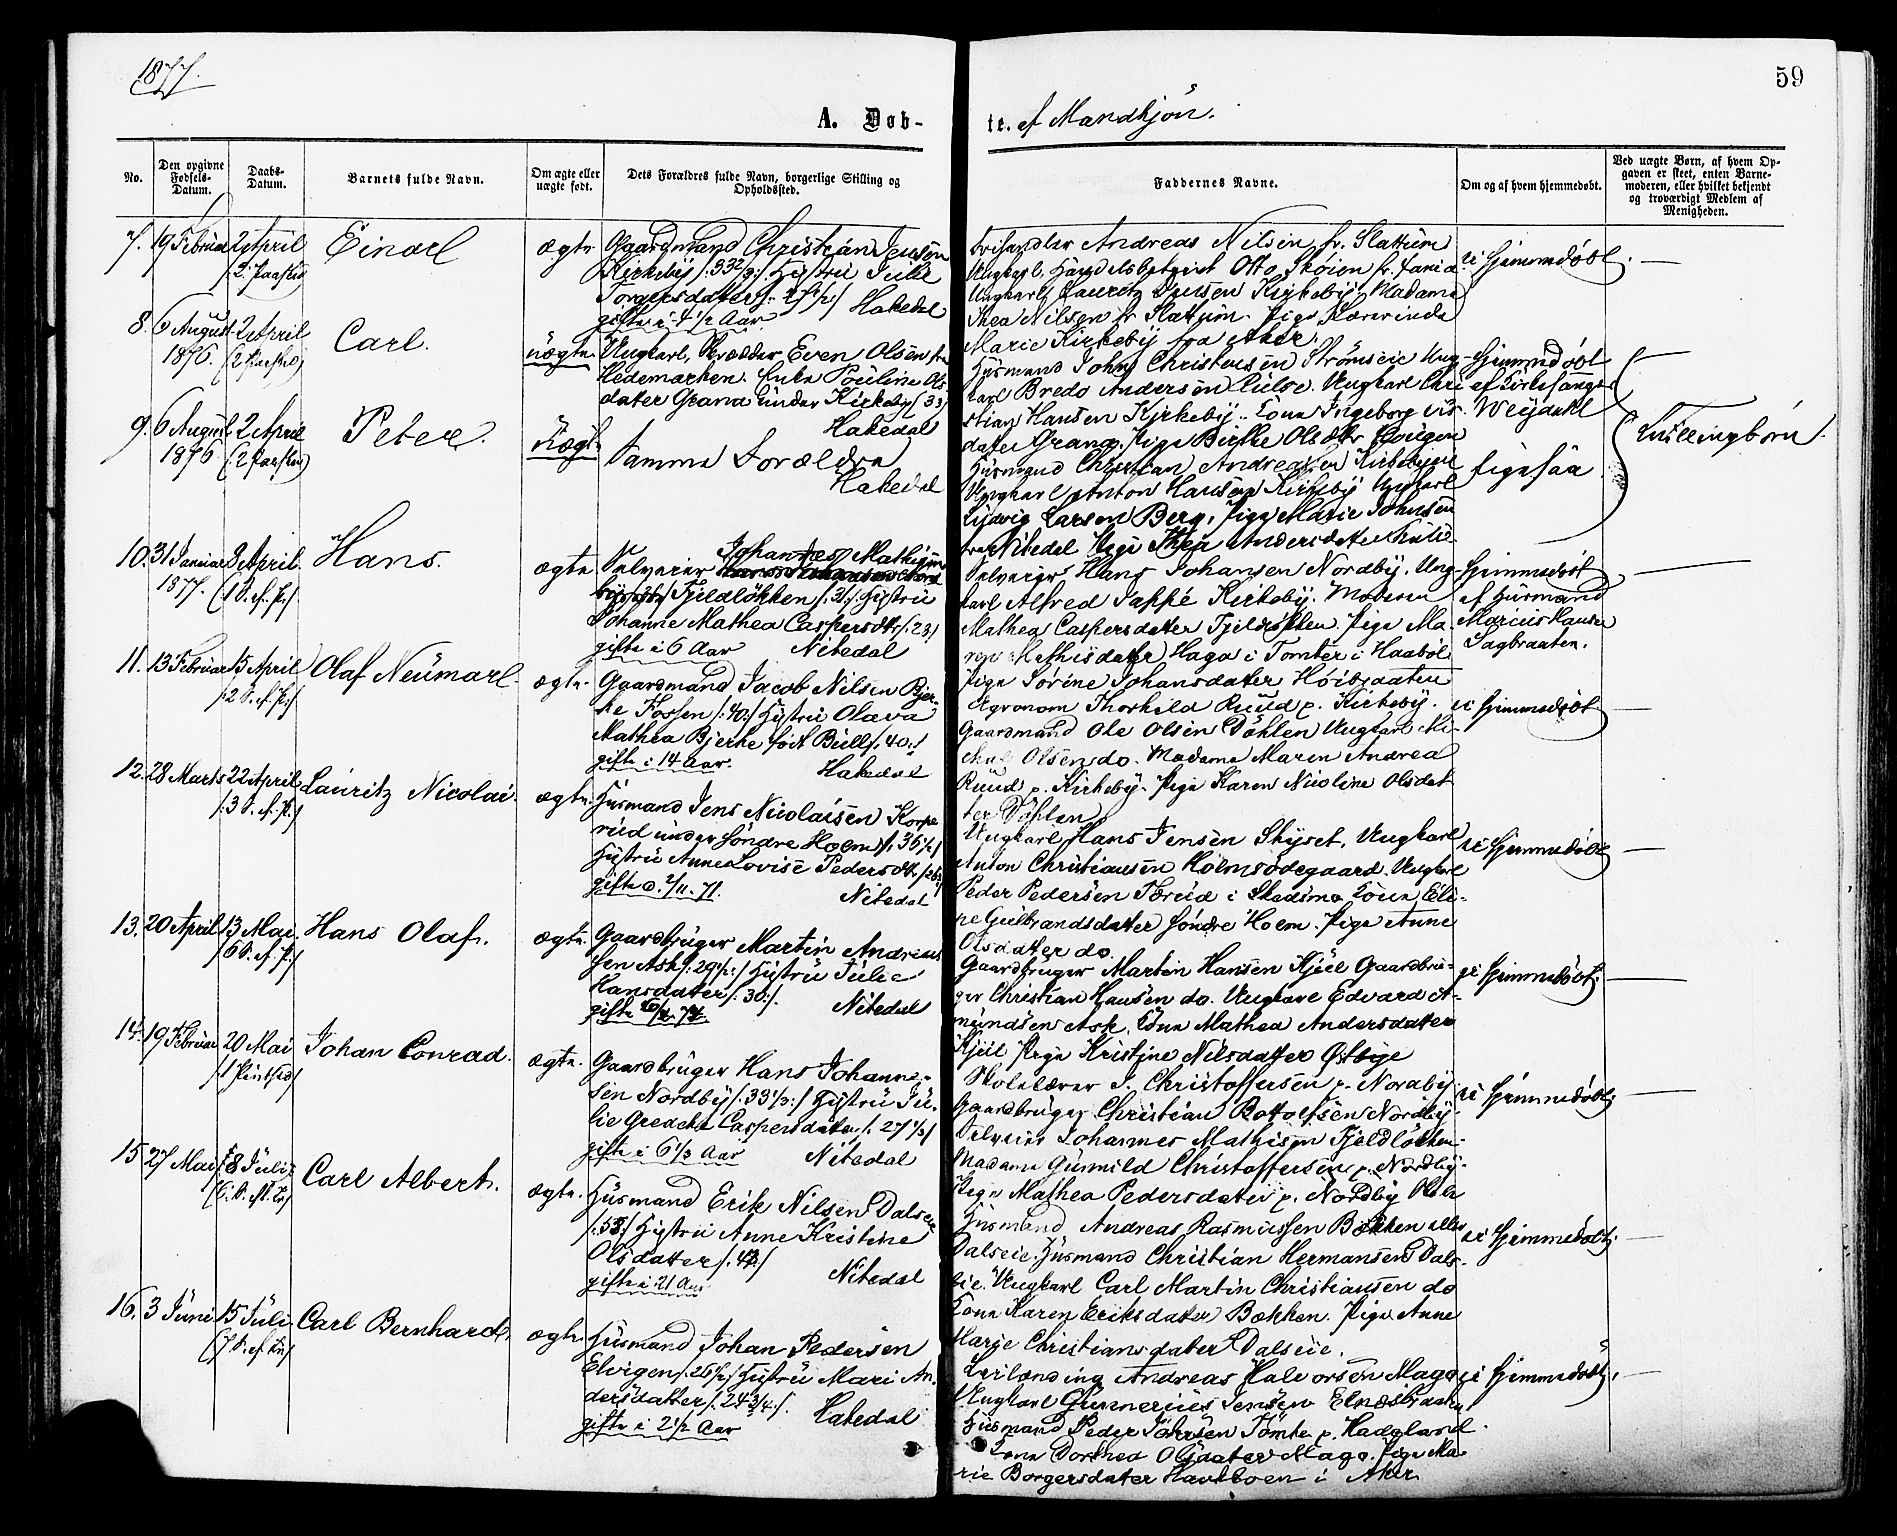 1877.
59
A. Døb-
te. af Mandkjøn.
No.
Den opgivne Fødsels-Datum.
Daabs-Datum.
Barnets fulde Navn.
Om ægte eller uægte født.
Dets Forældres fulde Navn, borgerlige Stilling og Opholdssted.
Faddernes Navne.
Om og af hvem hjemmedøbt.
Ved uægte Børn, af hvem Op-
gaven er skeet, enten Barne-
moderen, eller hvilket bekjendt
og troværdigt Medlem af
Menigheden.
7. 19 Februar 2 April (2 Paaskd) Einar ægte
Gaardmand Christian Jensen
Kirkeby Hustru Julie
Torgersdatter Hakedal
gifte i 4 1/2 Aar
Andreas Nilsen fr. Slattum
Ungkarl, Handelsbetjent Otto Skøien
Ungkarl Lauritz Jensen Kirkeby, Madame
Thea Nilsen fr Slattum. Pige
Marie Kirkeby fra Aker.
ei hjemmedøbt.
8. 6 August 1876. 2 April (2 Paaskd) Carl. uægte.
Ungkarl, Skrædder Even Olsen fra
Hedemarken. Enke Pouline Ols
dater Grana under Kirkeby (33)
Hakedal
Husmand John Christensen Strømseie Ung-
karl Bredo Andersen Ungkarl Chri
stian Hansen Kirkeby. Kone Ingeborg
datter Grana, Pige Birthe Olsdtr
hjemmedøbt
af Kirkesanger
Weydahl
9. 6 August 1876 2 April (2 Paaskd) Peter. uægte
Samme Forældre
Hakedal
Husmand Christian Andreasen Kirkebyeie
Ungkarl Anton Hansen Kirkeby Ungkarl
Ludvig Larsen Berg, Pige Marie Johnsen
fra Nitedal Pige Thea Andersdatter
ligesaa
Tvillingbørn.
10. 31 Januar 1877. 8 April (1 S. ef. P.) Hans. ægte
Selveier Johannes Mathisen
Fjeldløkken /:31:/ Hustru
Johanne Mathea Caspersdtr /:28:/
gifte i 6 Aar Nitedal
Selveier Hans Johansen Nordby, Ung-
karl Alfred Jappé Kirkeby. Moderen
Mathea Caspersdatter Fjeldløkken. Pige Ma-
ren Mathisdatter Haga i Tomter i Haabøl
Pige Sørine Johansdatter Høibraaten
hjemmedøbt
af Husmand
Marcus Hansen
Sagbraaten.
11. 13 Februar 15 April /:2 S. ef. P:/ Olaf Neumarl ægte.
Gaardmand Jacob Nilsen Bjer-
ke Fossen /:40:/ Hustru Olava
Mathea Bjerke født Bull /:40:/
gifte i 14 Aar. Hakedal
Agronom Thorkild Ruud p. Kirkeby.
Gaardmand Ole Olsen Døhlen Ungkarl Mi-
chael Olsen do. Madame Maren Andrea
Ruud p. Kirkeby. Pige Karen Nicoline Olsdat-
ter Døhlen
ei hjemmedøbt
12. 28 Marts 22 April /:3 S. ef. P:/ Lauritz Nicolai. ægte.
Husmand Jens Nicolaisen Korpe
rud under Søndre Holm /:36 1/2:/
Hustru Anne Lovise Pedersdtr
gifte d. 2/11. 71. Nitedal
Ungkarl Hans Jensen Skyset, Ungkarl
Anton Christiansen Holmsødegaard. Ungkarl
Peder Pedersen Torud i Skedsmo Kone Eli-
ne Gulbrandsdatter Søndre Holm. Pige Anne
Olsdatter do.
ei hjemmedøbt
13. 20 April 13 Mai. /:6 S. ef. P:/ Hans Olaf. ægte.
Gaardbruger Martin Andrias
sen Ask /:29 1/2:/ Hustru Julie
Hansdatter /:30:/. Nitedal
gifte
Gaardbruger Martin Hansen Kjeel Gaardbru-
ger Christian Hansen do. Ungkarl Edvard A-
mundsen Ask. Kone Mathea Andersdatter
Kjeel Pige Kristine Nilsdatter Østbye
ei hjemmedøbt.
14. 19 Februar 20 Mai /:1 Pintsed:/ Johan Conrad. ægte.
Gaardbruger Hans Johanne-
sen Nordby /:33 1/3:/ Hustru Ju-
lie Gredeha Caspersdatter /:27 1/3:/
gifte i 6 1/3 Aar Nitedal
Skolelærer J. Christoffersen p. Nordby
Gaardbruger Christian Botolfsen Nordby.
Selveier Johannes Mathisen Fjeldløkken.
Madame Gunnild Christoffersen p. Nordby.
Pige Mathea Pedersdatter p. Nordby
ei hjemmedøbt
15 27 Mai 8 Juli Carl Albert. ægte.
Husmand Erik Nilsen Dalseie
/:53:/ Hustru Anne Kristine
Olsdatter
gifte i 21 Aar Nitedal
Husmand Andreas Rasmussen Bækken eller
Dalseie. Husmand Christian Hermansen Dals-
eie. Ungkarl Carl Martin Christiansen do
Kone Karen Eriksdatter Bækken. Pige Anne
Marie Christiansdatter Dalseie.
ei hjemmedøbt.
16. 3 Juni 15 Juli Carl Bernhard. ægte.
Husmand Johan Pedersen
Elvigen /:26 1/2:/ Hustru Mari An-
dersdatter /:24 3/4:/.
gifte i 2 1/2 Aar Hakedal
Leilænding Andreas Halvorsen Mago
Ungkarl Gunnerius Jensen Elnesbraaten
Husmand Peder Johnsen Tomte p. Hadeland
Kone Dorthea Olsdatter Mago. Pige Ma-
rie Borgersdatter Haukboen i Aker
ei hjemmedøbt.